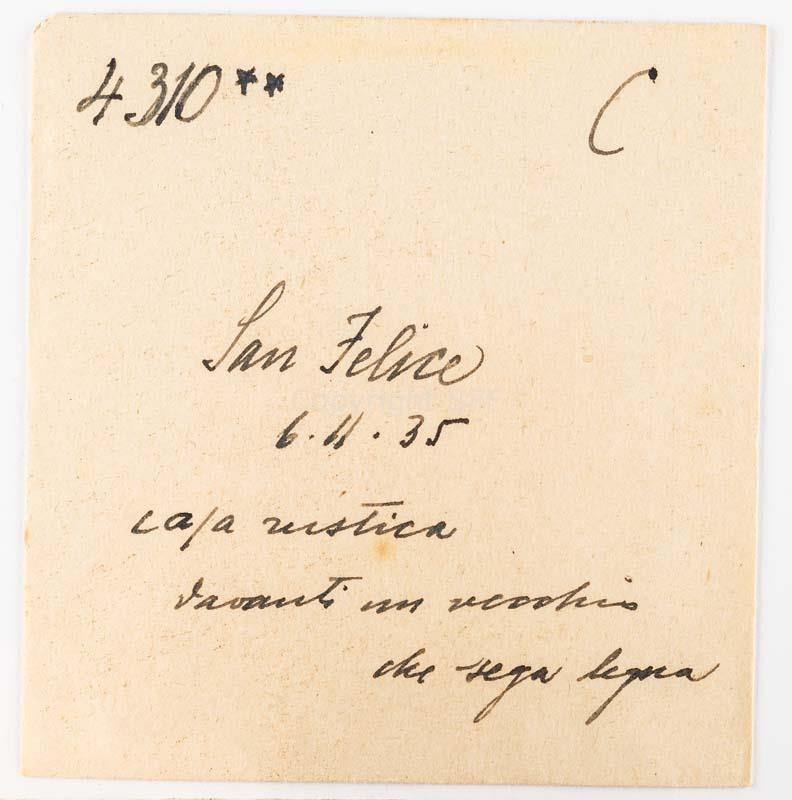 4310** C
San Felice
6.11.35
casa rustica
davanti un vecchio
che sega legna